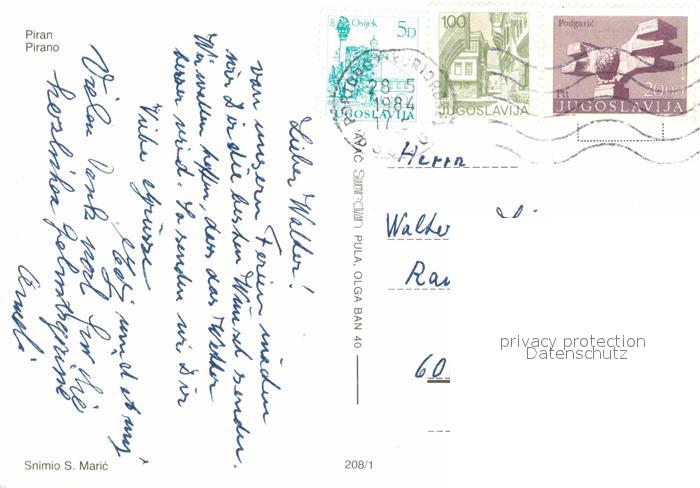 Piran
Pirano
Osijek
5D
JUGOSLAVIJA
100
JUGOSLAVIJA
Podgarić
20.00
JUGOSLAVIJA
28-5
1984
17
Lieber Walter!
von unsern Ferien möchten
wir Dir die besten Wünsche senden.
Wir wollen hoffen, dass das Wetter
besser wird. So senden wir Dir
Liebe Grüsse
Edi und
Vielen Dank noch für die
herzlichen
Herrn
Walter
60
PULA, OLGA BAN 40
Snimio S. Marić
208/1
privacy protection
Datenschutz